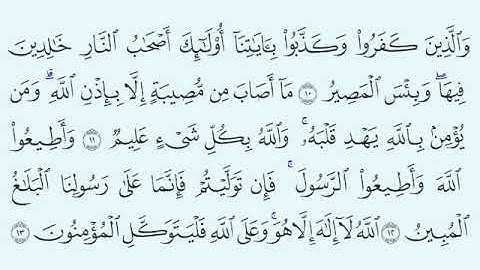 وَالَّذِينَ كَفَرُوا۟ وَكَذَّبُوا۟ بِـَٔايَـٰتِنَآ أُو۟لَـٰٓئِكَ أَصْحَـٰبُ ٱلنَّارِ خَـٰلِدِينَ
فِيهَا ۖ وَبِئْسَ ٱلْمَصِيرُ ۝١٠ مَآ أَصَابَ مِن مُّصِيبَةٍ إِلَّا بِإِذْنِ ٱللَّهِ ۗ وَمَن
يُؤْمِنۢ بِٱللَّهِ يَهْدِ قَلْبَهُۥ ۚ وَٱللَّهُ بِكُلِّ شَىْءٍ عَلِيمٌ ۝١١ وَأَطِيعُوا۟
ٱللَّهَ وَأَطِيعُوا۟ ٱلرَّسُولَ ۚ فَإِن تَوَلَّيْتُمْ فَإِنَّمَا عَلَىٰ رَسُولِنَا ٱلْبَلَـٰغُ
ٱلْمُبِينُ ۝١٢ ٱللَّهُ لَآ إِلَـٰهَ إِلَّا هُوَ ۚ وَعَلَى ٱللَّهِ فَلْيَتَوَكَّلِ ٱلْمُؤْمِنُونَ ۝١٣